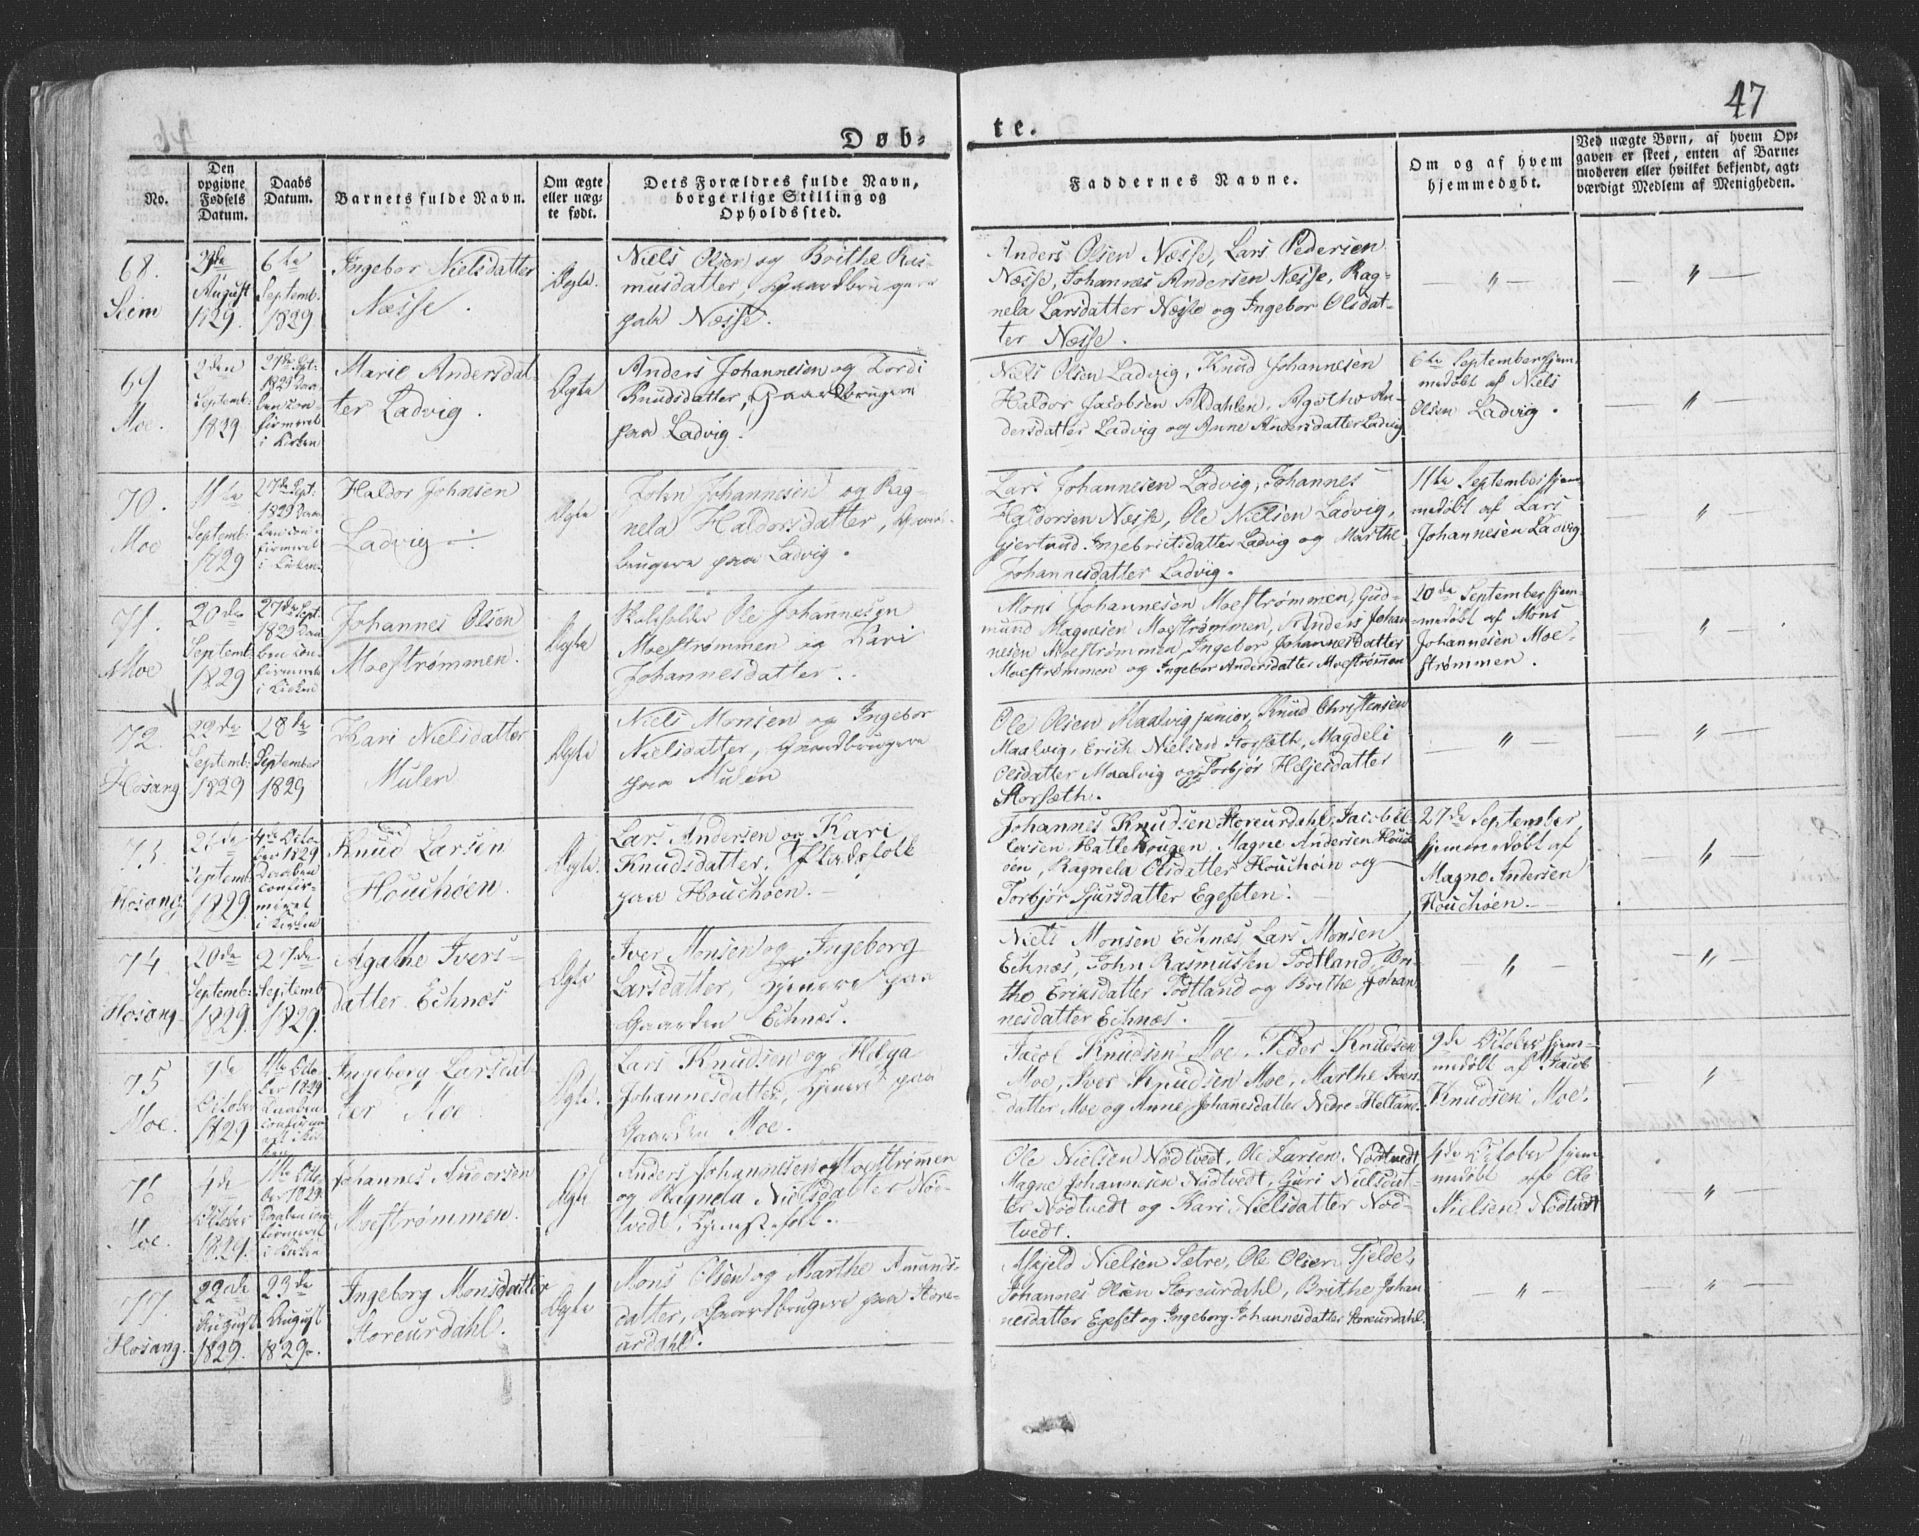 47
Døb-
te.
No.
Den opgivne Fødsels Datum.
Daabs Datum.
Barnets fulde Navn.
Om ægte eller uægte født.
Dets Forældres fulde Navn, borgerlige Stilling og Opholdssted.
Faddernes Navne.
Om og af hvem hjemmedøbt.
Ved uægte Børn, af hvem Opgaven er skeet, enten af Barnemoderen eller hvilket bekjendt, agtværdigt Medlem af Menigheden.
68.
Seim
August
1829.
6te
Septemb.
1829
Ingebor Nielsdatter
Næsse.
Ægte.
Niels Olsen og Brithe Ras-
musdatter, Gaardbrugere
paa Næsse.
Anders Olsen Næsse, Lars Pedersen
Næsse, Johannes Andersen Næsse, Rag-
nela Larsdatter Næsse og Ingebor Olsdat-
ter Næsse.
69
Moe.
2den
Septemb.
1829
27de Sept.
1829 Daa-
ben con-
firmeret
i Kirken
Marie Andersdat-
ter Ladvig.
Ægte
Anders Johannesen og Lordi
Knudsdatter, Gaardbrugere
paa Ladvig.
Niels Olsen Ladvig, Knud Johannesen
Haldor Jacobsen Aadahlen, Agethe An-
dersdatter Ladvig og Anne Andersdatter Ladvig
6te September hjem-
medøbt af Niels
Olsen Ladvig.
70.
Moe
11te
Septemb.
1829
27de Sept.
1829 Daa-
ben con-
firmeret
i Kirken
Haldor Johnsen
Ladvig
Ægte
John Johannesen og Rag-
nela Haldorsdatter, Gaard-
brugere paa Ladvig.
Lars Johannesen Ladvig, Johannes
Haldorsen Næsse, Ole Nielsen Ladvig,
Gjertrud Ingebrictsdatter Ladvig og Marthe
Johannesdatter Ladvig.
11te September hjem-
medøbt af Lars
Johannesen Ladvig.
71.
Moe
20de
Septemb.
1829
27de Sept.
1829 Daa-
ben con-
firmeret
i Kirken
Johannes Olsen
Moestrømmen.
Ægte
Ole Johannesen
Moestrømmen og Kari
Johannesdatter.
Mons Johannesen Moestrømmen, Gud-
mund Magnesen Moestrømmen, Anders Johan-
nesen Moestrømmen, Ingebor Johannesdatter
Moestrømmen og Ingebor Andersdatter Moestrømmen
20de September hjem-
medøbt af Mons
Johannesen Moe-
strømmen.
72.
Hosang
22de
Septemb.
1829
28de
September
1829
Kari Nielsdatter
Mulen
Ægte
Niels Monsen og Ingebor
Nielsdatter, Gaardbrugere
paa Mulen
Ole Olsen Maalvig junior, Knud Christensen
Maalvig, Erich Nielsen Storsæth, Magdeli
Olsdatter Maalvig og Torbjør Heljesdatter
Storsæth.
73.
Hosang.
Septemb.
1829.
4de Octo-
ber 1829
Daaben
confir-
meret
i Kirken
Knud Larsen
Houchøen.
Ægte.
Lars Andersen og Kari
Knudsdatter, Pladsfolk
paa Houchøen.
Johannes Knudsen Storeurdahl, Jacob El-
lersen Hatlehougen, Magne Andersen Houch-
øen, Ragnela Olsdatter Houchøen og
Torbjør Sjursdatter Egesæten.
27de September
hjemmedøbt af
Magne Andersen
Houchøen.
74
Hosang
20de
Septemb:
1829.
27de
Septemb:
1829.
Agathe Ivers-
datter Echnæs
Ægte
Iver Monsen og Ingeborg
Larsdatter, tjenere paa
Gaarden Echnæs.
Niels Monsen Echnæs, Lars Monsen
Echnæs, John Rasmussen Todtland, Bri-
the Eriksdatter Todtland og Brithe Johan-
nesdatter Echnæs.
75
Moe.
October
1829
11te Octo-
ber 1829
Daaben
Ingeborg Larsdat-
ter Moe
Ægte.
Lars Knudsen og Helga
Johannesdatter, tjenere paa
Gaarden Moe.
Jacob Knudsen Moe, Peder Knudsen
Moe, Iver Knudsen Moe, Marthe Ivers-
datter Moe og Anne Johannesdatter Nedre-Helland.
9de October hjem-
medøbt af Jacob
Knudsen Moe.
76
Moe.
4de
October
1829.
11te Octo-
ber 1829
Daaben con-
firmeret
i Kirken
Johannes Andersen
Moestrømmen.
Ægte
Anders Johannesen Moestrømmen
og Ragnela Nielsdatter Nød-
tvedt, tjenestefolk.
Ole Nielsen Nødtvedt, Ole Larsen Nødtvedt,
Magne Johannesen Nødtvedt, Guri Nielsdat-
ter Nødtvedt og Kari Nielsdatter Nød-
tvedt.
4de October hjem-
medøbt af Ole
Nielsen Nødtvedt
77.
Hosang.
22de
August
1829.
23de
August
1829.
Ingeborg Monsdatter
Storeurdahl.
Ægte
Mons Olsen og Marthe Amunds-
datter, Gaardbrugere paa Store-
urdahl.
Askjeld Nielsen Sætre, Ole Olsen Fjelde,
Johannes Olsen Storeurdahl, Brithe Johan-
nesdatter Egeset og Ingeborg Johannesdatter Storeurdahl.